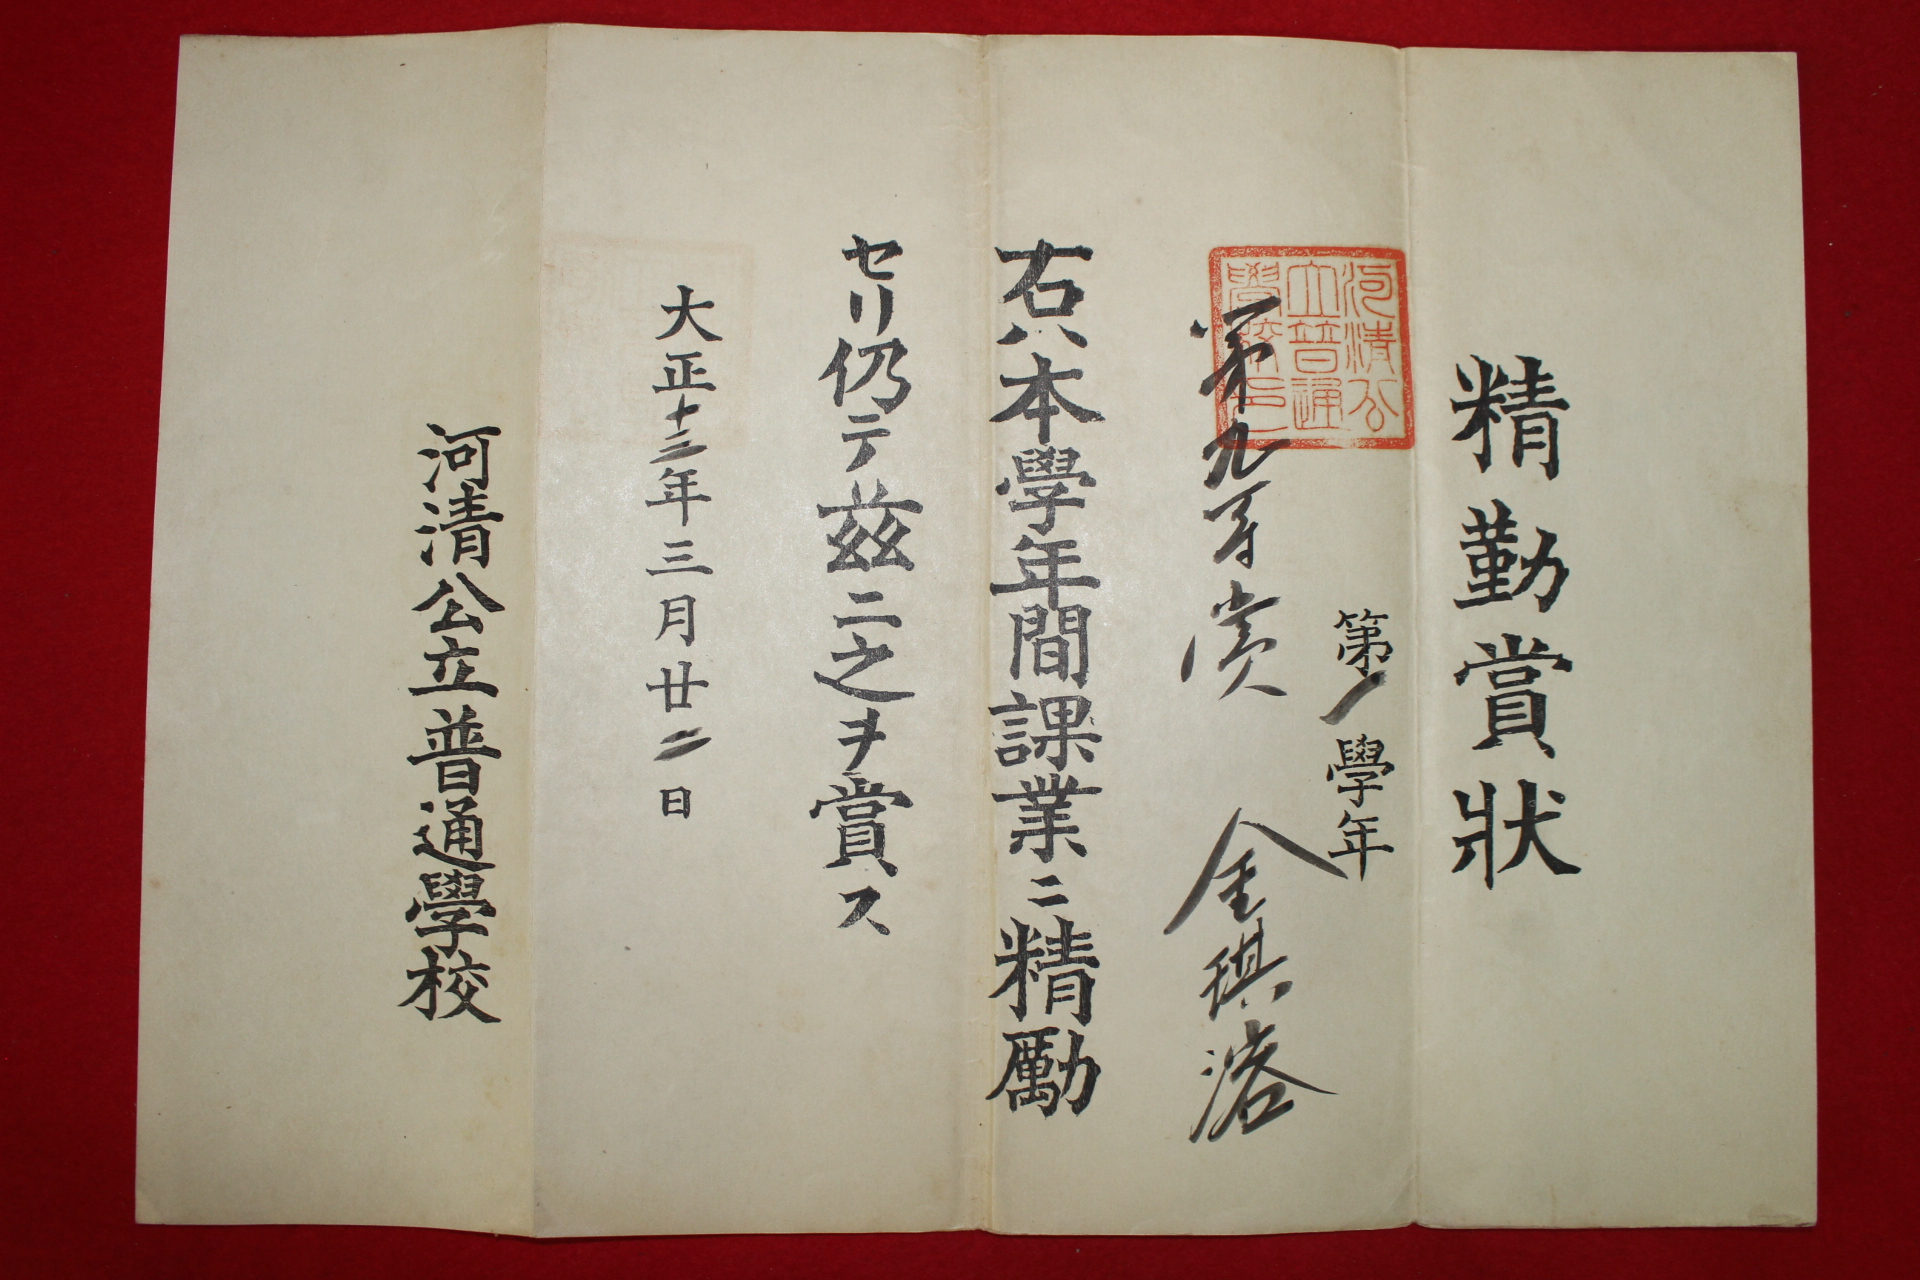 精勤賞狀
第一學年
第九等賞 金琪溶
河清公
立普通
學校印
右ハ本學年間課業ニ精勵
セリ仍テ茲ニ之ヲ賞ス
大正十三年三月廿二日
河清公立普通學校